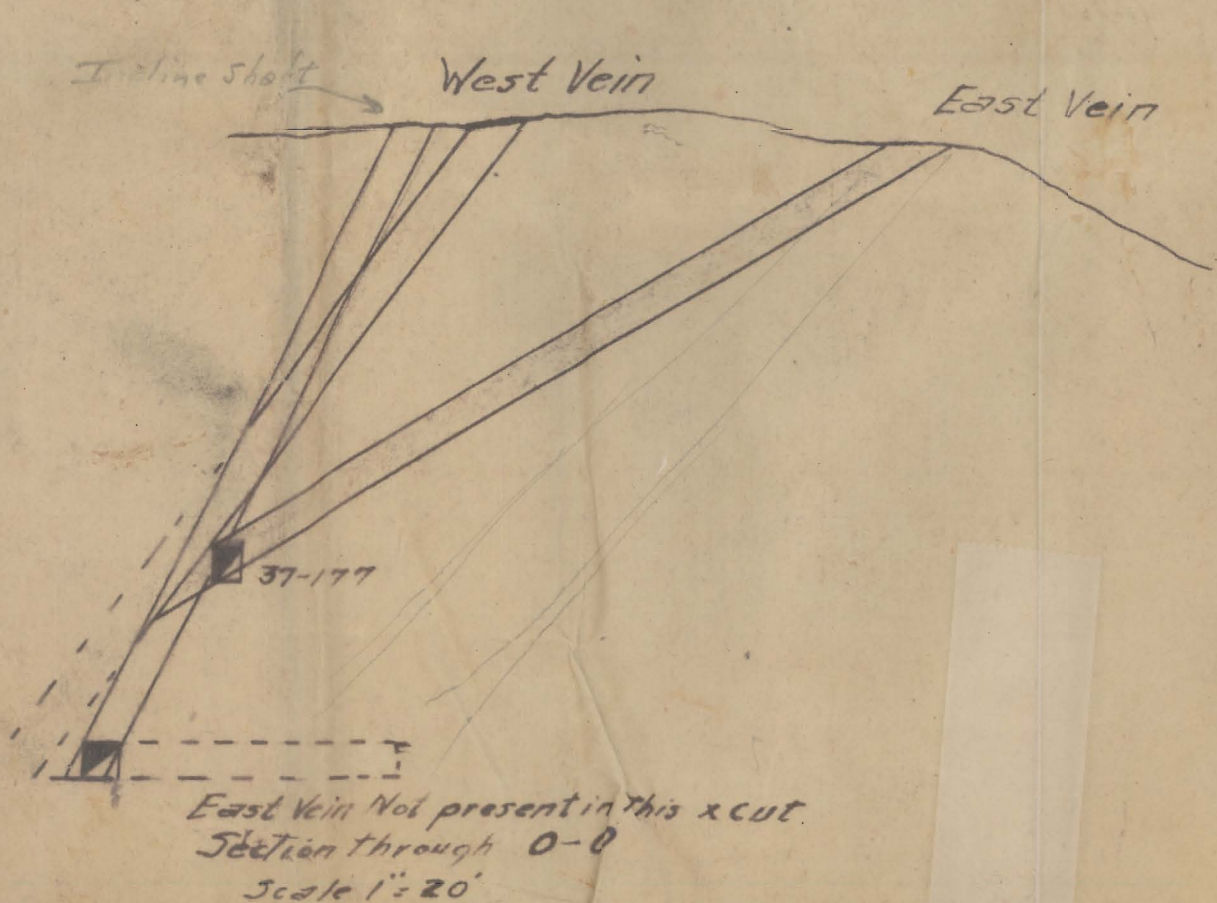 Incline Shaft
West Vein
East Vein
37-177
East Vein Not present in This x cut
Section through 0-0
Scale 1"= 20'